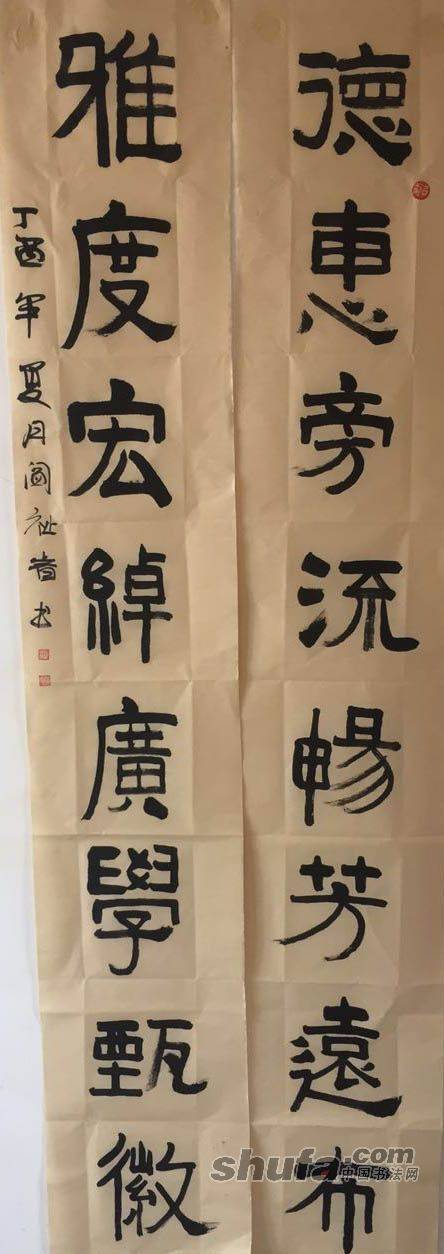 德惠旁流暢芳遠布
雅度宏綽廣學甄徽
丁酉年夏月书
shufa.com
中国书法网